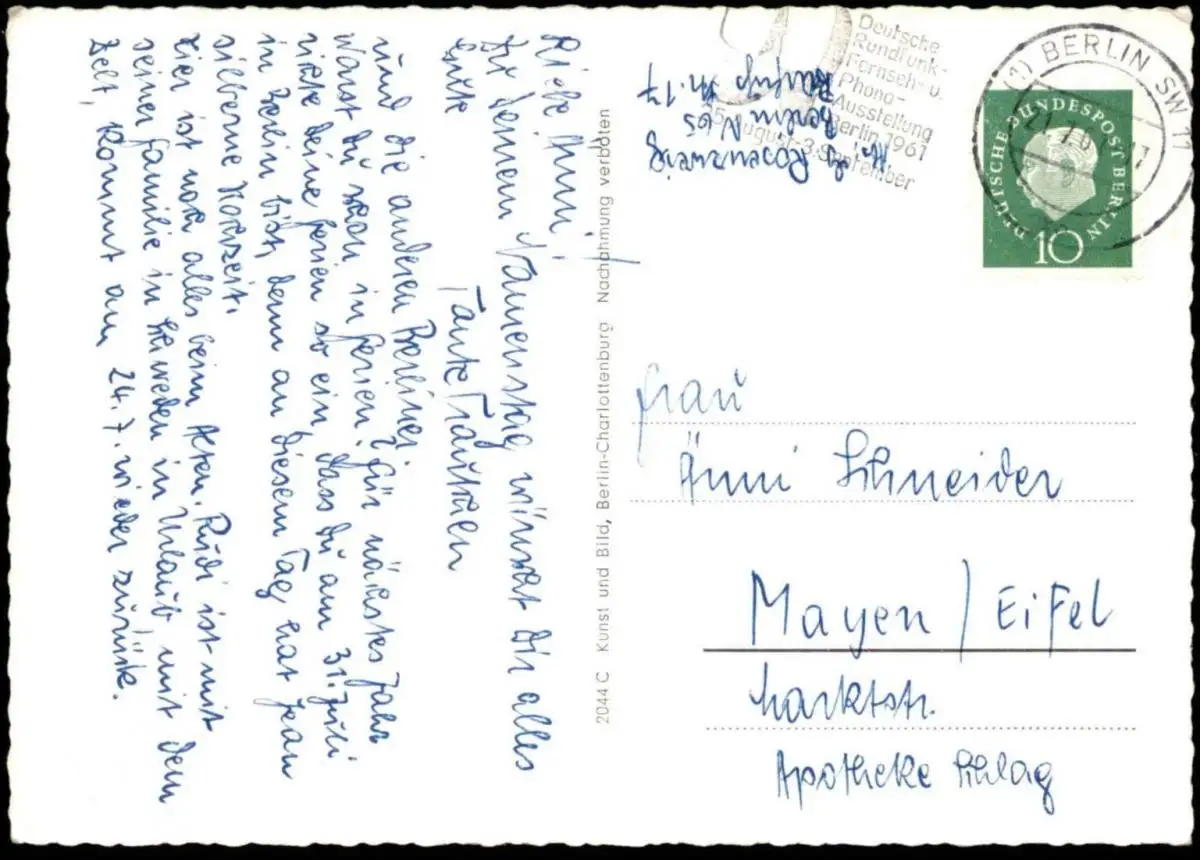 Liebe Änni!
Zu Deinem Namenstag wünscht Dir alles
Gute
Tante Träutchen
und die anderen Berliner.
Warst Du schon in Ferien? Für nächstes Jahr
richte deine Ferien so ein, dass Du am 31. Juli
in Berlin bist, denn an diesem Tag hat Jean
silberne Hochzeit.
Hier ist noch alles beim Alten. Rudi ist mit
seiner Familie in Schweden in Urlaub mit dem
Zelt, kommt am 24.7. wieder zurück.
2044 C Kunst und Bild, Berlin-Charlottenburg Nachahmung verboten
Rosenzweig
Berlin N 65
17
Deutsche
Rundfunk-
Fernseh- u.
Phono-
Ausstellung
Berlin 1961
25. August-3. September
(1) BERLIN SW 11
DEUTSCHE BUNDESPOST BERLIN
10
Frau
Änni Schneider
Mayen / Eifel
Marktstr.
Apotheke Schlag